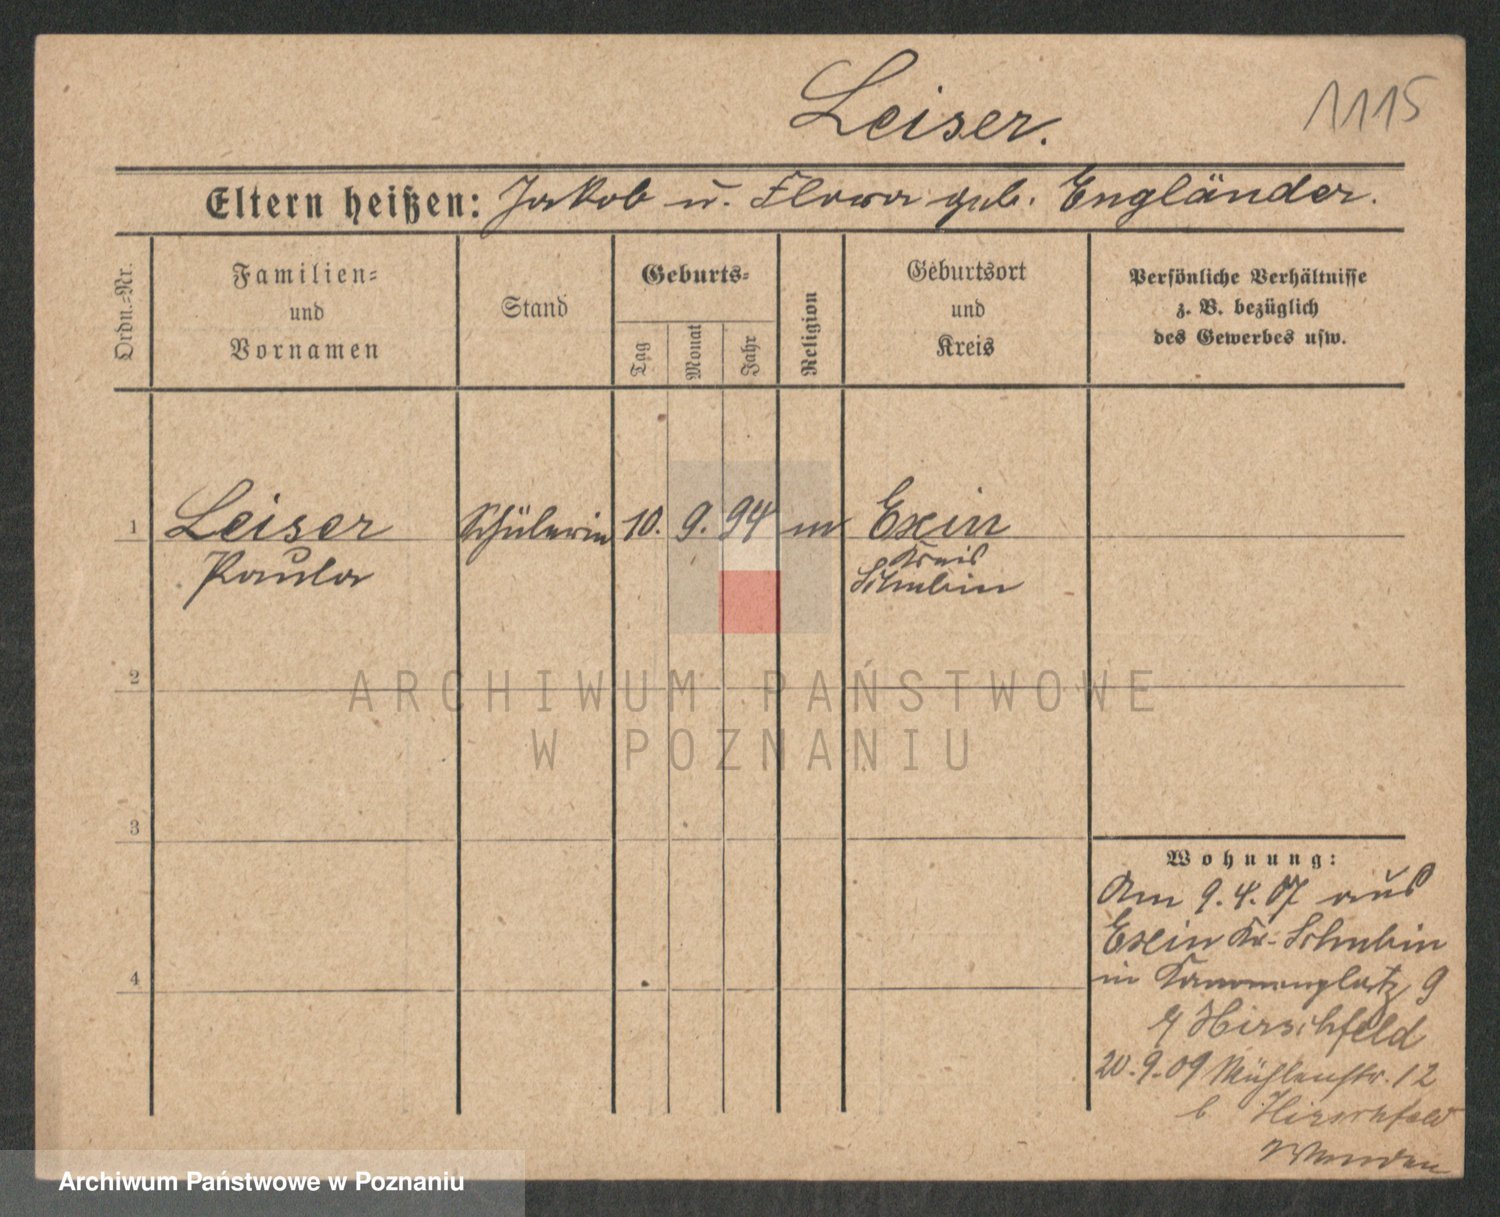 Leiser.
1115
Eltern heißen: Jakob u. Flora geb. Engländer.
Ordn.-Nr.
Familien-
und
Vornamen
Stand
Geburts-
Tag
Monat
Jahr
Religion
Geburtsort
und
Kreis
Persönliche Verhältnisse
z. B. bezüglich
des Gewerbes usw.
1 Leiser Schülerin 10. 9. 94 m Exin
Paula
Kreis
Schubin
2
3
4
Wohnung:
Am 9.4.07 aus
Exin Kr. Schubin
in Kanonenplatz 9
Hirschfeld
20.9.09 Mühlenstr. 12
b Hirschfeld
ARCHIWUM PAŃSTWOWE
W POZNANIU
Archiwum Państwowe w Poznaniu